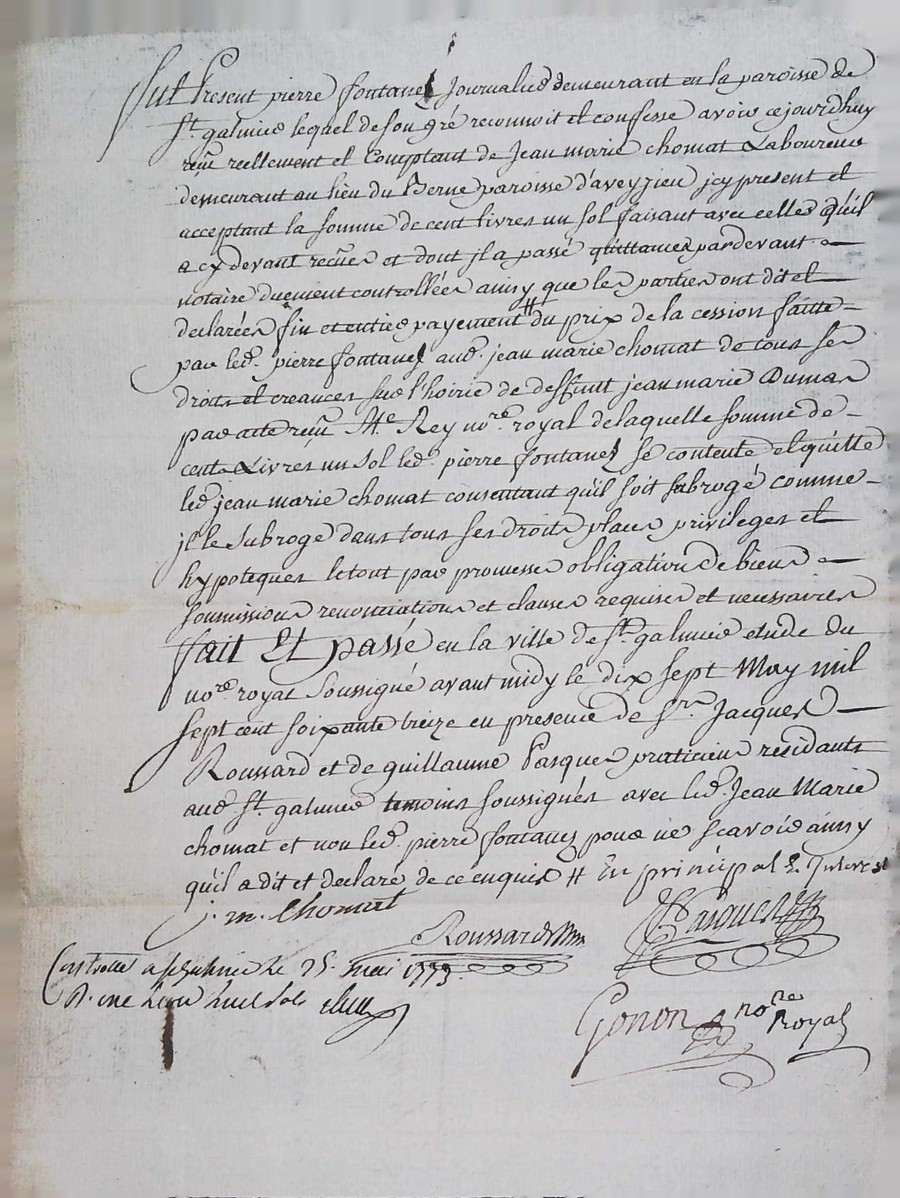 fut Present pierre fontanes journalier demeurant en la paroisse de
st. galmier lequel de son gré reconnoit et confesse avoir cejourdhuy
reçu reellement et Comptant de Jean marie chomat Laboureur
demeurant au lieu du Berne paroisse d'aveyzieu jcy present et
acceptant la somme de cent livres un sol faisant avec celles qu'eil
a cy devant reçues et dont jl a passé quittances pardevant
notaire duement controllées ainsy que les parties ont dit et
declarées fin et entier payement # du prix de la cession faitte
par led. pierre fontanes aud. jean marie chomat de tous ses
droits et creances sur l'hoirie de deffunt jean marie Dumas
par acte reçu Me Rey nore. royal de laquelle somme de
cent Livres un sol led. pierre fontanes se contente et quitte
led. jean marie chomat consentant qu'il soit subrogé comme
jl le subroge dans tous ses droits places privileges et
hypoteques le tout par promesse obligation de biens
soumissions renonciations et clauses requises et necessaires
fait Et passé en la ville de st. galmier etude du
nore. royal soussigné avant midy le dix sept May mil
sept cent soixante treize en presence de sr. Jacques
Roussard et de guillaume Pasquer praticiens residants
aud. st. galmier temoins soussignés avec led. Jean Marie
chomat et non led. pierre fontanes pour ne scavoir ainsy
qu'il a dit et declaré de ce enquis # En principal & Interest
j. m. Chomat
Roussard
Pasquer
Controllé a st galmier le 25. mai 1773.
R. une livre huit sols
Gonon nore Royal